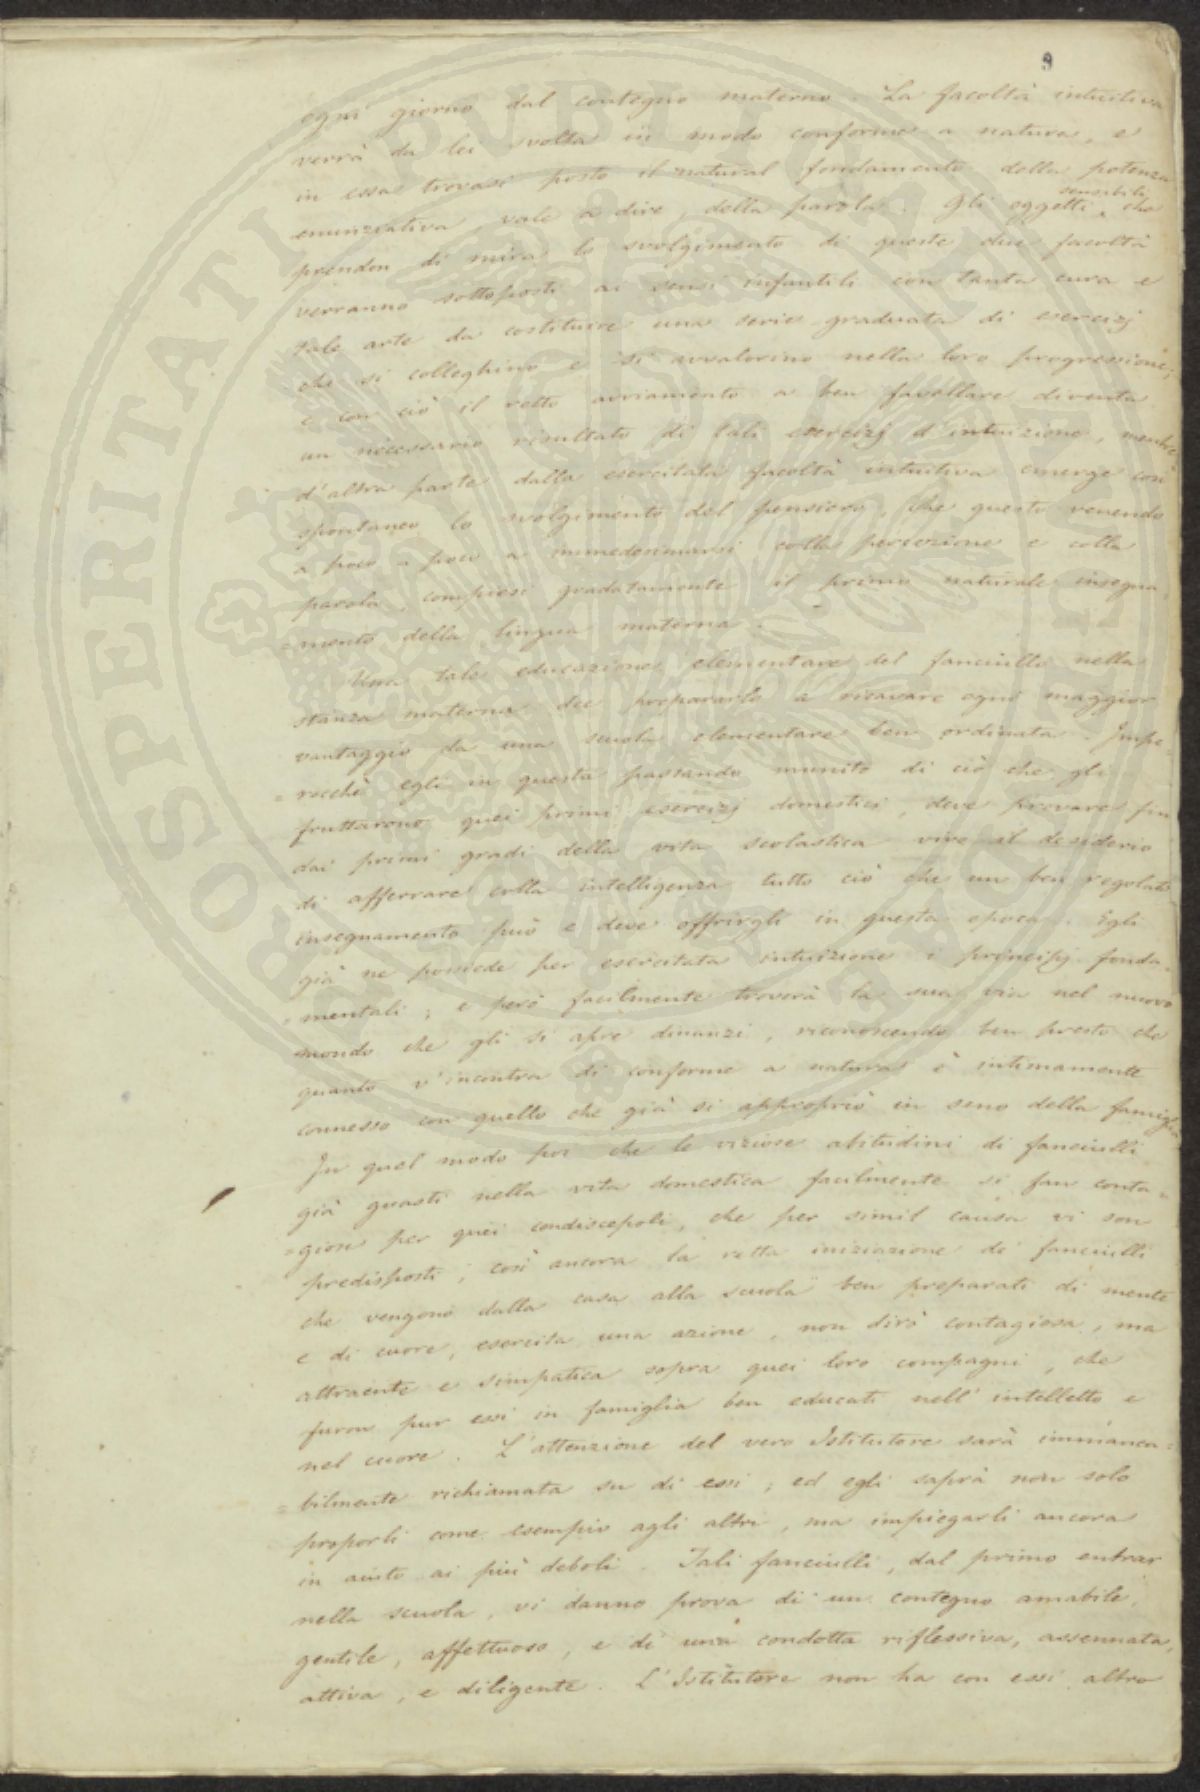 9
ogni giorno dal contegno materno. La facoltà intuitiva
verrà da lei svolta in modo conforme a natura, e
in essa trovasi posto il natural fondamento della potenza
enunziativa, vale a dire, della parola. Gli oggetti sensibili, che
prendon di mira lo svolgimento di queste due facoltà
verranno sottoposti ai sensi infantili con tanta cura e
tale arte da costituire una serie graduata di esercizj
che si colleghino e si avvalorino nella loro progressione;
e con ciò il retto avviamento a ben favellare diventa
un necessario risultato di tali esercizj d'intuizione, mentre
d'altra parte dalla esercitata facoltà intuitiva emerge così
spontaneo lo svolgimento del pensiero, che questo venendo
a poco a poco a immedesimarsi colla percezione e colla
parola, compiesi gradatamente il primo naturale insegna=
=mento della lingua materna.
Una tale educazione elementare del fanciullo nella
stanza materna dee prepararlo a ricavare ogni maggior
vantaggio da una scuola elementare ben ordinata. Impe=
=rocchè egli in questa passando munito di ciò che gli
fruttarono quei primi esercizj domestici, deve provare fin
dai primi gradi della vita scolastica vivo il desiderio
di afferrare colla intelligenza tutto ciò che un ben regolato
insegnamento può e deve offrirgli in questa epoca. Egli
già ne possiede per esercitata intuizione i principj fonda=
=mentali; e però facilmente troverà la sua via nel nuovo
mondo che gli si apre dinanzi, riconoscendo ben presto che
quanto v'incontra di conforme a natura è intimamente
connesso con quello che già si appropriò in seno della famiglia.
In quel modo poi che le viziose abitudini di fanciulli
già guasti nella vita domestica facilmente si fan conta=
=giose per quei condiscepoli, che per simil causa vi son
predisposti; così ancora la retta iniziazione de' fanciulli
che vengono dalla casa alla scuola ben preparati di mente
e di cuore, esercita una azione, non dirò contagiosa, ma
attraente e simpatica sopra quei loro compagni, che
furon pur essi in famiglia ben educati nell'intelletto e
nel cuore. L'attenzione del vero Istitutore sarà immanca=
=bilmente richiamata su di essi; ed egli saprà non solo
proporli come esempio agli altri, ma impiegarli ancora
in aiuto ai più deboli. Tali fanciulli, dal primo entrar
nella scuola, vi danno prova di un contegno amabile,
gentile, affettuoso, e di una condotta riflessiva, assennata,
attiva, e diligente. L'Istitutore non ha con essi altro
PROSPERITATI PVBLICAE